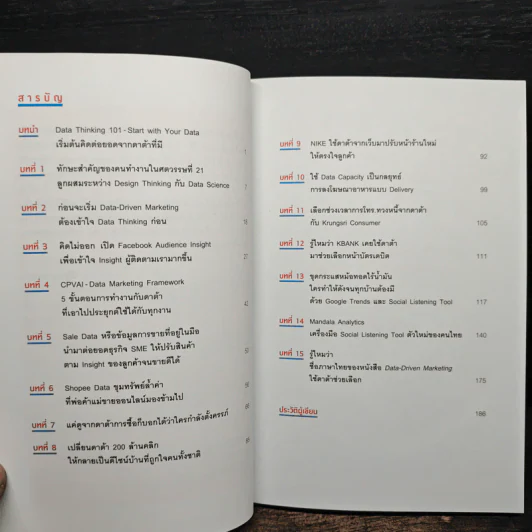 สารบัญ
บทนำ Data Thinking 101 - Start with Your Data
เริ่มต้นคิดต่อยอดจากดาต้าที่มี
บทที่ 1 ทักษะสำคัญของคนทำงานในศตวรรษที่ 21
ลูกผสมระหว่าง Design Thinking กับ Data Science
บทที่ 2 ก่อนจะเริ่ม Data-Driven Marketing
ต้องเข้าใจ Data Thinking ก่อน
บทที่ 3 คิดไม่ออก เปิด Facebook Audience Insight
เพื่อเข้าใจ Insight ผู้ติดตามเรามากขึ้น
บทที่ 4 CPVAI - Data Marketing Framework
5 ขั้นตอนการทำงานกับดาต้า
ที่เอาไปประยุกต์ใช้ได้กับทุกงาน
บทที่ 5 Sale Data หรือข้อมูลการขายที่อยู่ในมือ
นำมาต่อยอดธุรกิจ SME ให้ปรับสินค้า
ตาม Insight ของลูกค้าจนขายดีได้
บทที่ 6 Shopee Data ขุมทรัพย์ล้ำค่า
ที่พ่อค้าแม่ขายออนไลน์มองข้ามไป
บทที่ 7 แค่ดูจากดาต้าการซื้อก็บอกได้ว่าใครกำลังตั้งครรภ์
บทที่ 8 เปลี่ยนดาต้า 200 ล้านคลิก
ให้กลายเป็นดีไซน์บ้านที่ถูกใจคนทั้งชาติ
บทที่ 9 NIKE ใช้ดาต้าจากเว็บมาปรับหน้าร้านใหม่
ให้ตรงใจลูกค้า 92
บทที่ 10 ใช้ Data Capacity เป็นกลยุทธ์
การลงโฆษณาอาหารแบบ Delivery 99
บทที่ 11 เลือกช่วงเวลาการโทร.ทวงหนี้จากดาต้า
กับ Krungsri Consumer 105
บทที่ 12 รู้ไหมว่า KBANK เคยใช้ดาต้า
มาช่วยเลือกหน้าบัตรเดบิต 111
บทที่ 13 ขุดกระแสหม้อทอดไร้น้ำมัน
ใครทำให้ดังจนทุกบ้านต้องมี
ด้วย Google Trends และ Social Listening Tool 117
บทที่ 14 Mandala Analytics
เครื่องมือ Social Listening Tool ตัวใหม่ของคนไทย 140
บทที่ 15 รู้ไหมว่า
ชื่อภาษาไทยของหนังสือ Data-Driven Marketing
ใช้ดาต้าช่วยเลือก 175
ประวัติผู้เขียน 186